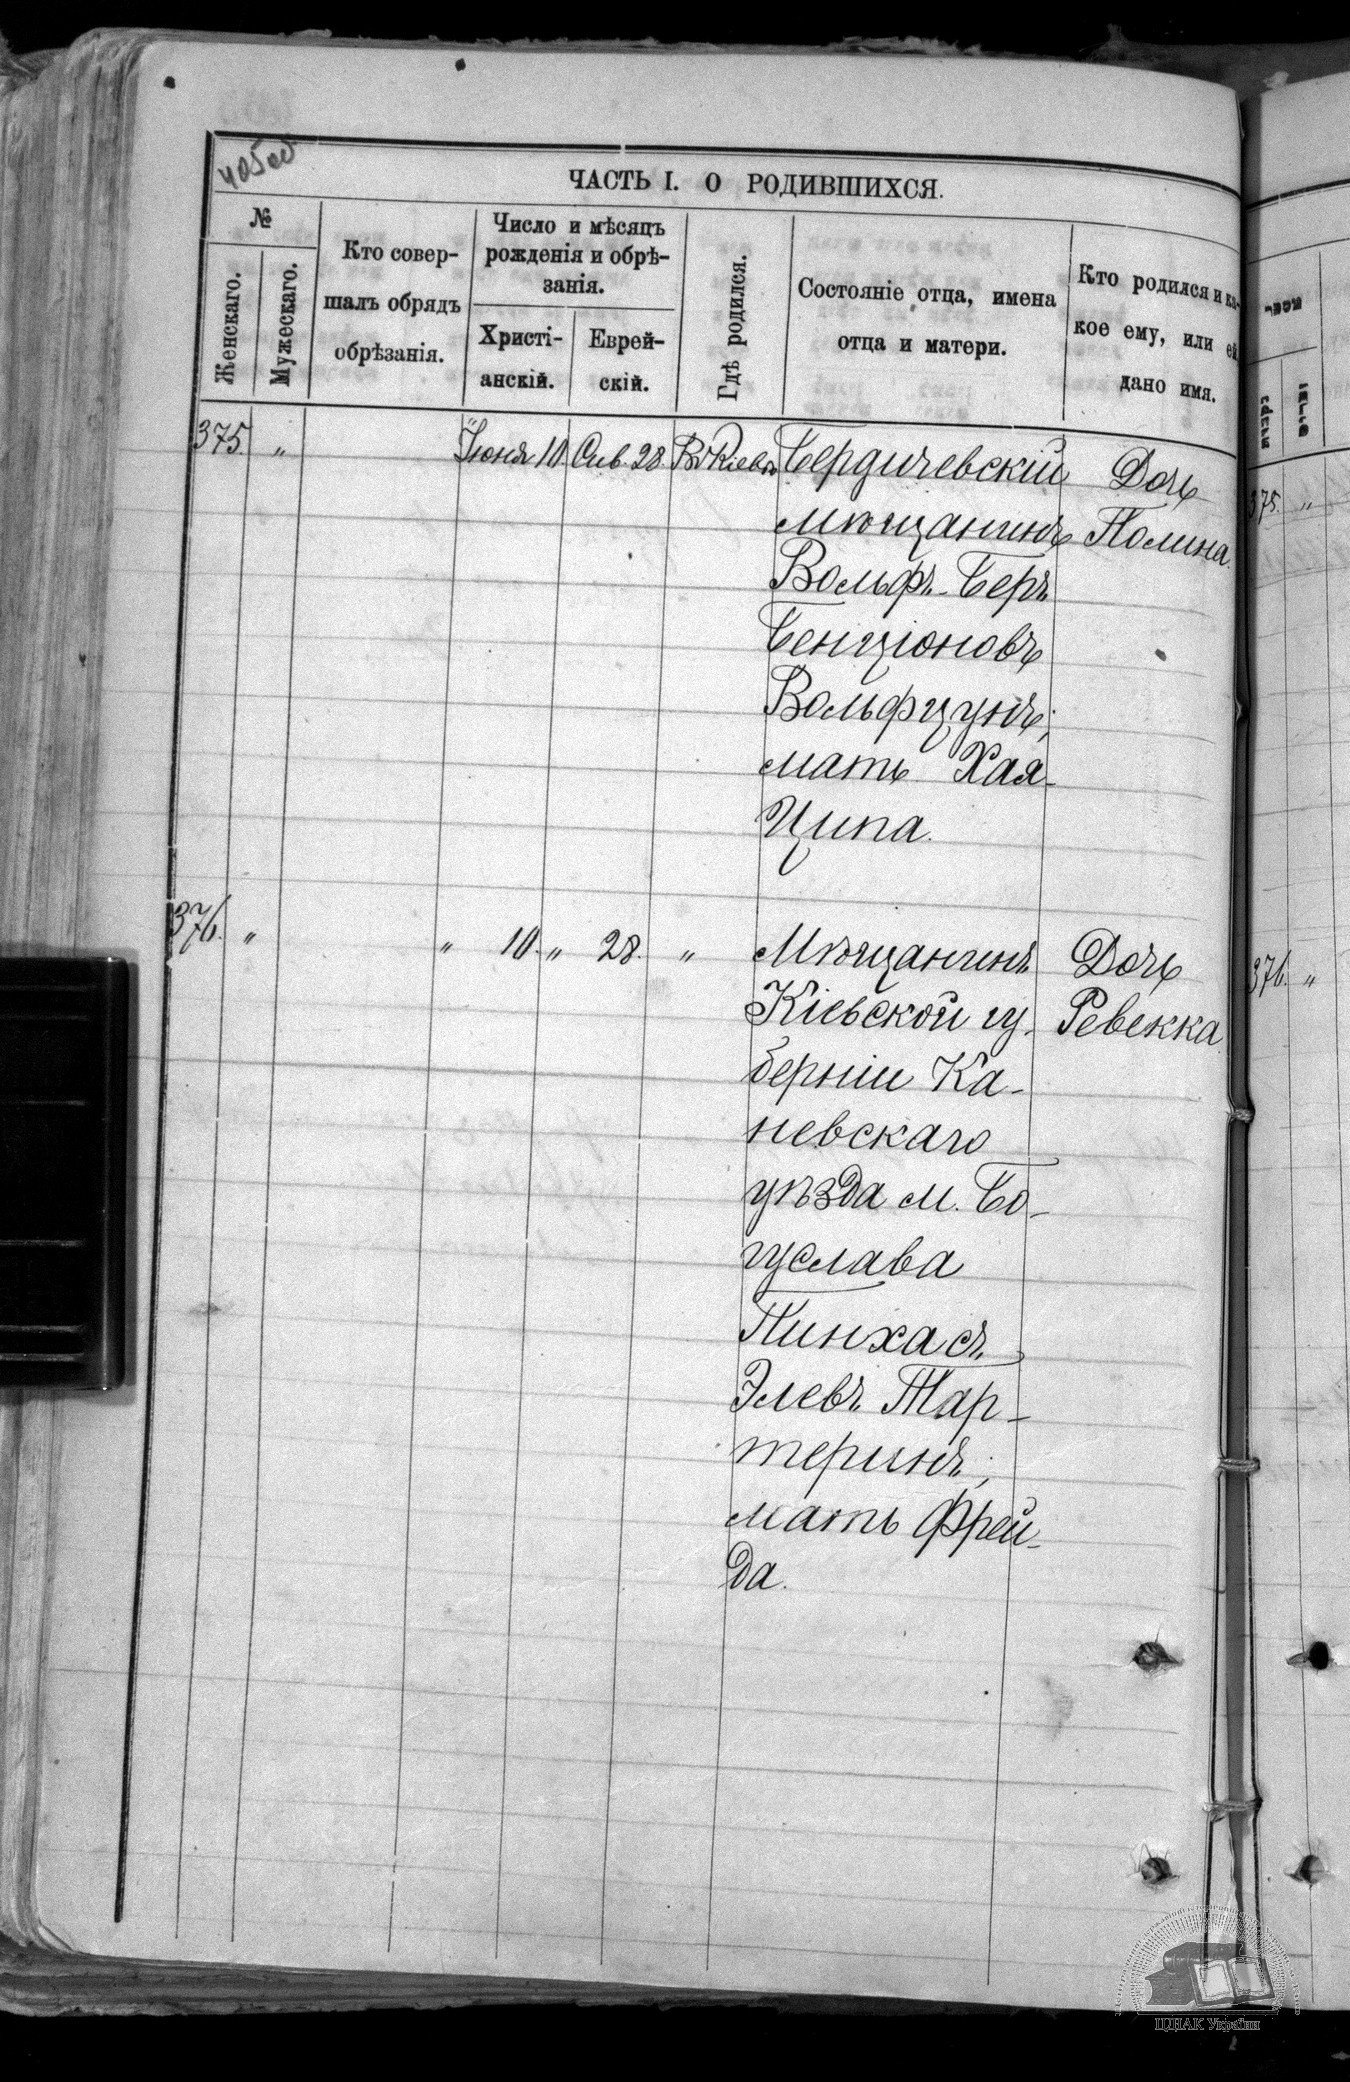 405об
ЧАСТЬ I. О РОДИВШИХСЯ.
№
Женскаго.
Мужескаго.
Кто совер-
шалъ обрядъ
обрѣзанія.
Число и мѣсяцъ
рожденія и обрѣ-
занія.
Христі-
анскій.
Еврей-
скій.
Гдѣ родился.
Состояніе отца, имена
отца и матери.
Кто родился и ка-
кое ему, или ей
дано имя.
375. " Іюня 10. Сив. 28. Въ Кіевѣ
Бердичевскій
мѣщанинъ
Вольфъ-Беръ
Бенціоновъ
Вольфцунъ;
мать Хая-
Ципа.
Дочь
Полина.
376. " " 10. " 28. "
Мѣщанинъ
Кіевской гу-
берніи Ка-
невскаго
уѣзда м. Бо-
гуслава
Пинхасъ
Элевъ Тар-
теринъ;
мать Фрей-
да.
Дочь
Ревекка.
מספר
נקבות
זכרים
375. "
376. "
ЦДІАК України